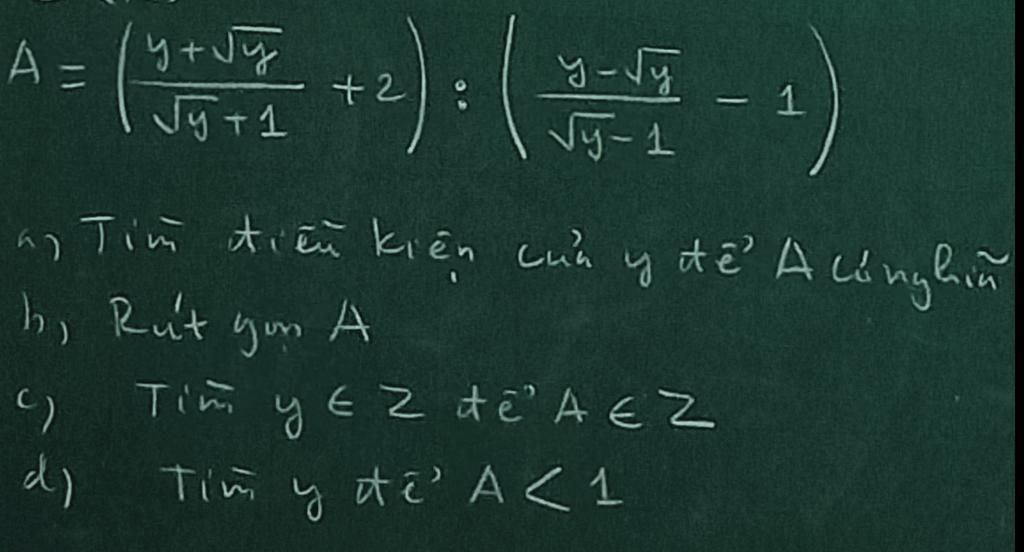 A = ( (y+√y)/(√y+1) +2 ) : ( (y-√y)/(√y-1) - 1 )
a, Tìm điều kiện của y để A có nghĩa
b, Rút gọn A
c) Tìm y ∈ Z để A ∈ Z
d) Tìm y để A < 1